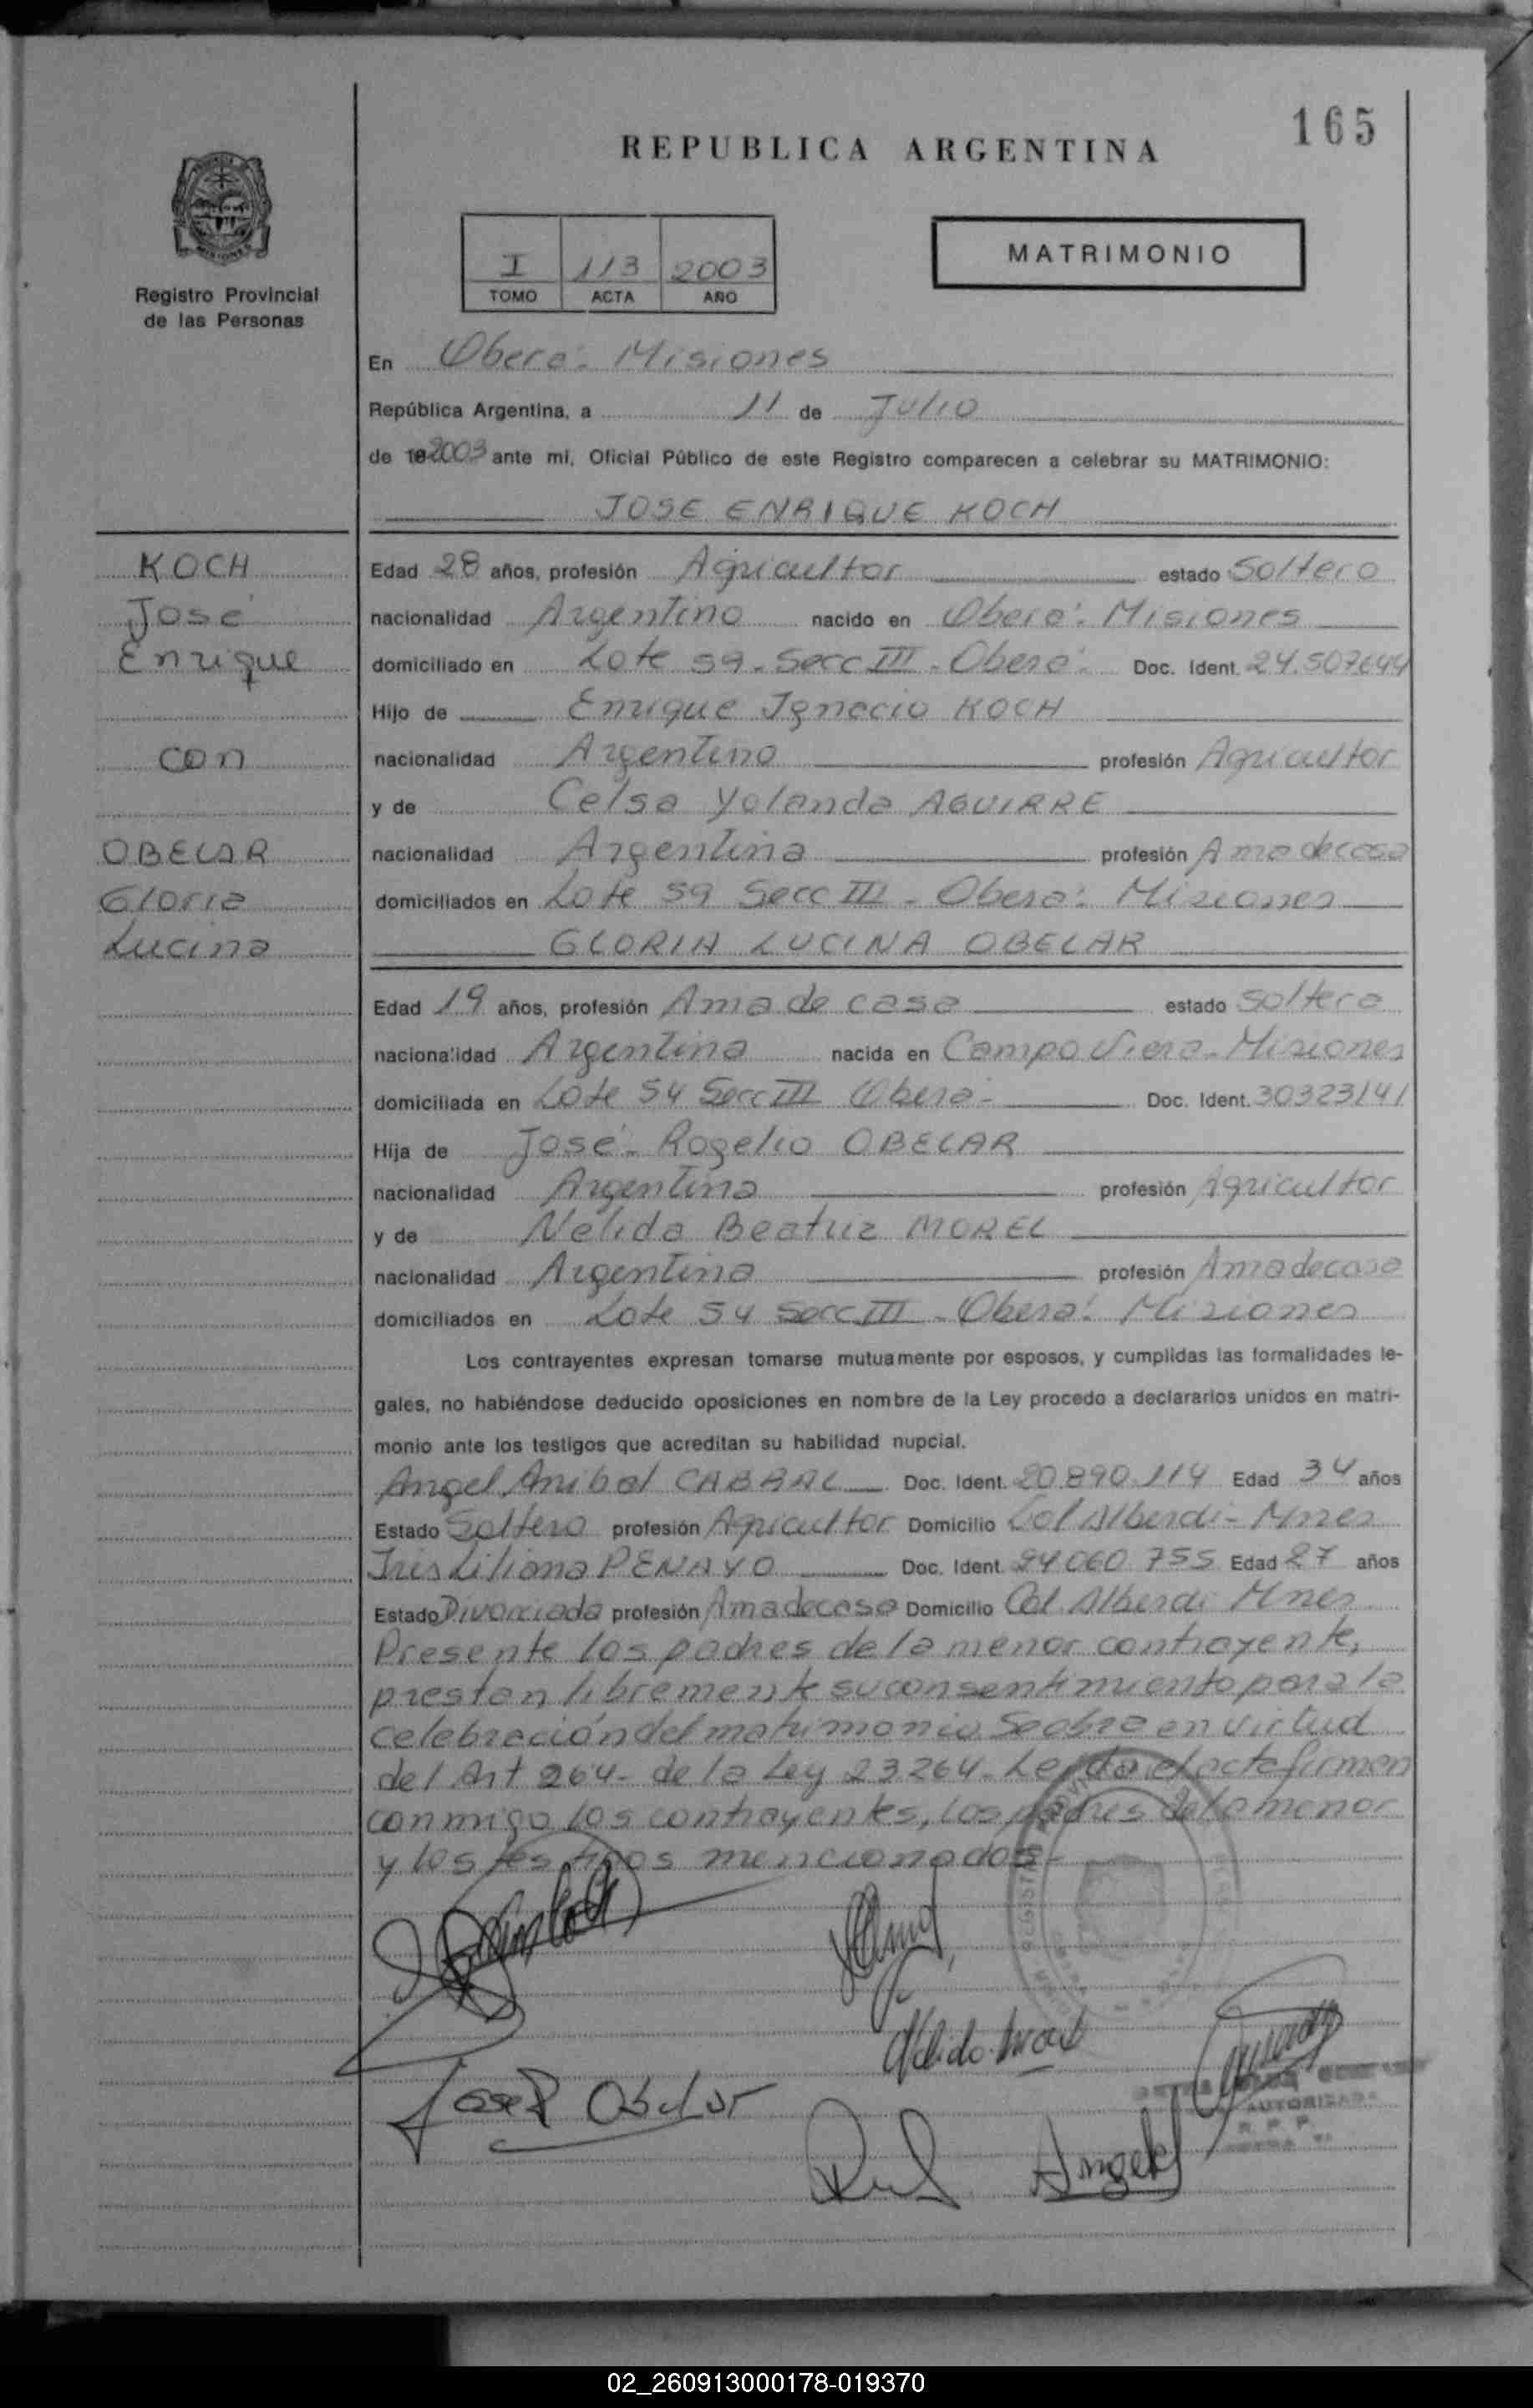 165
REPUBLICA ARGENTINA
I 113 2003
TOMO ACTA AÑO
MATRIMONIO
Registro Provincial
de las Personas
En Oberá. Misiones
República Argentina, a 11 de Julio
de 19 2003 ante mi, Oficial Público de este Registro comparecen a celebrar su MATRIMONIO:
JOSE ENRIQUE KOCH
KOCH
José
Enrique
con
OBELAR
Gloria
Lucina
Edad 28 años, profesión Agricultor estado Soltero
nacionalidad Argentino nacido en Oberá. Misiones
domiciliado en Lote 59. Secc III - Oberá. Doc. Ident. 24.507644
Hijo de Enrique Ignacio KOCH
nacionalidad Argentino profesión Agricultor
y de Celsa Yolanda AGUIRRE
nacionalidad Argentina profesión Ama de casa
domiciliados en Lote 59 Secc III - Oberá. Misiones
GLORIA LUCINA OBELAR
Edad 19 años, profesión Ama de casa estado Soltera
nacionalidad Argentina nacida en Campo Viera - Misiones
domiciliada en Lote 54 Secc III Oberá - Doc. Ident. 30323141
Hija de José. Rogelio OBELAR
nacionalidad Argentina profesión Agricultor
y de Nélida Beatriz MOREL
nacionalidad Argentina profesión Ama de casa
domiciliados en Lote 54 Secc III - Oberá. Misiones
Los contrayentes expresan tomarse mutuamente por esposos, y cumplidas las formalidades le-
gales, no habiéndose deducido oposiciones en nombre de la Ley procedo a declararlos unidos en matri-
monio ante los testigos que acreditan su habilidad nupcial.
Angel Anibal CABRAL Doc. Ident. 20.890.114 Edad 34 años
Estado Soltero profesión Agricultor Domicilio Col Alberdi - Mnes
Iris Liliana PENAYO Doc. Ident. 24 060. 755 Edad 27 años
Estado Divorciada profesión Ama de casa Domicilio Col. Alberdi Mnes
Presente los padres de la menor contrayente,
prestan libremente su consentimiento para la
celebración del matrimonio. Se obra en virtud
del Art 264 - de la Ley 23264 - Leída el acta firman
conmigo los contrayentes, los padres de la menor
y los testigos mencionados -
Nélida Morel
José R Obelar
Angel
AUTORIZADA
R. P. P.
02_260913000178-019370